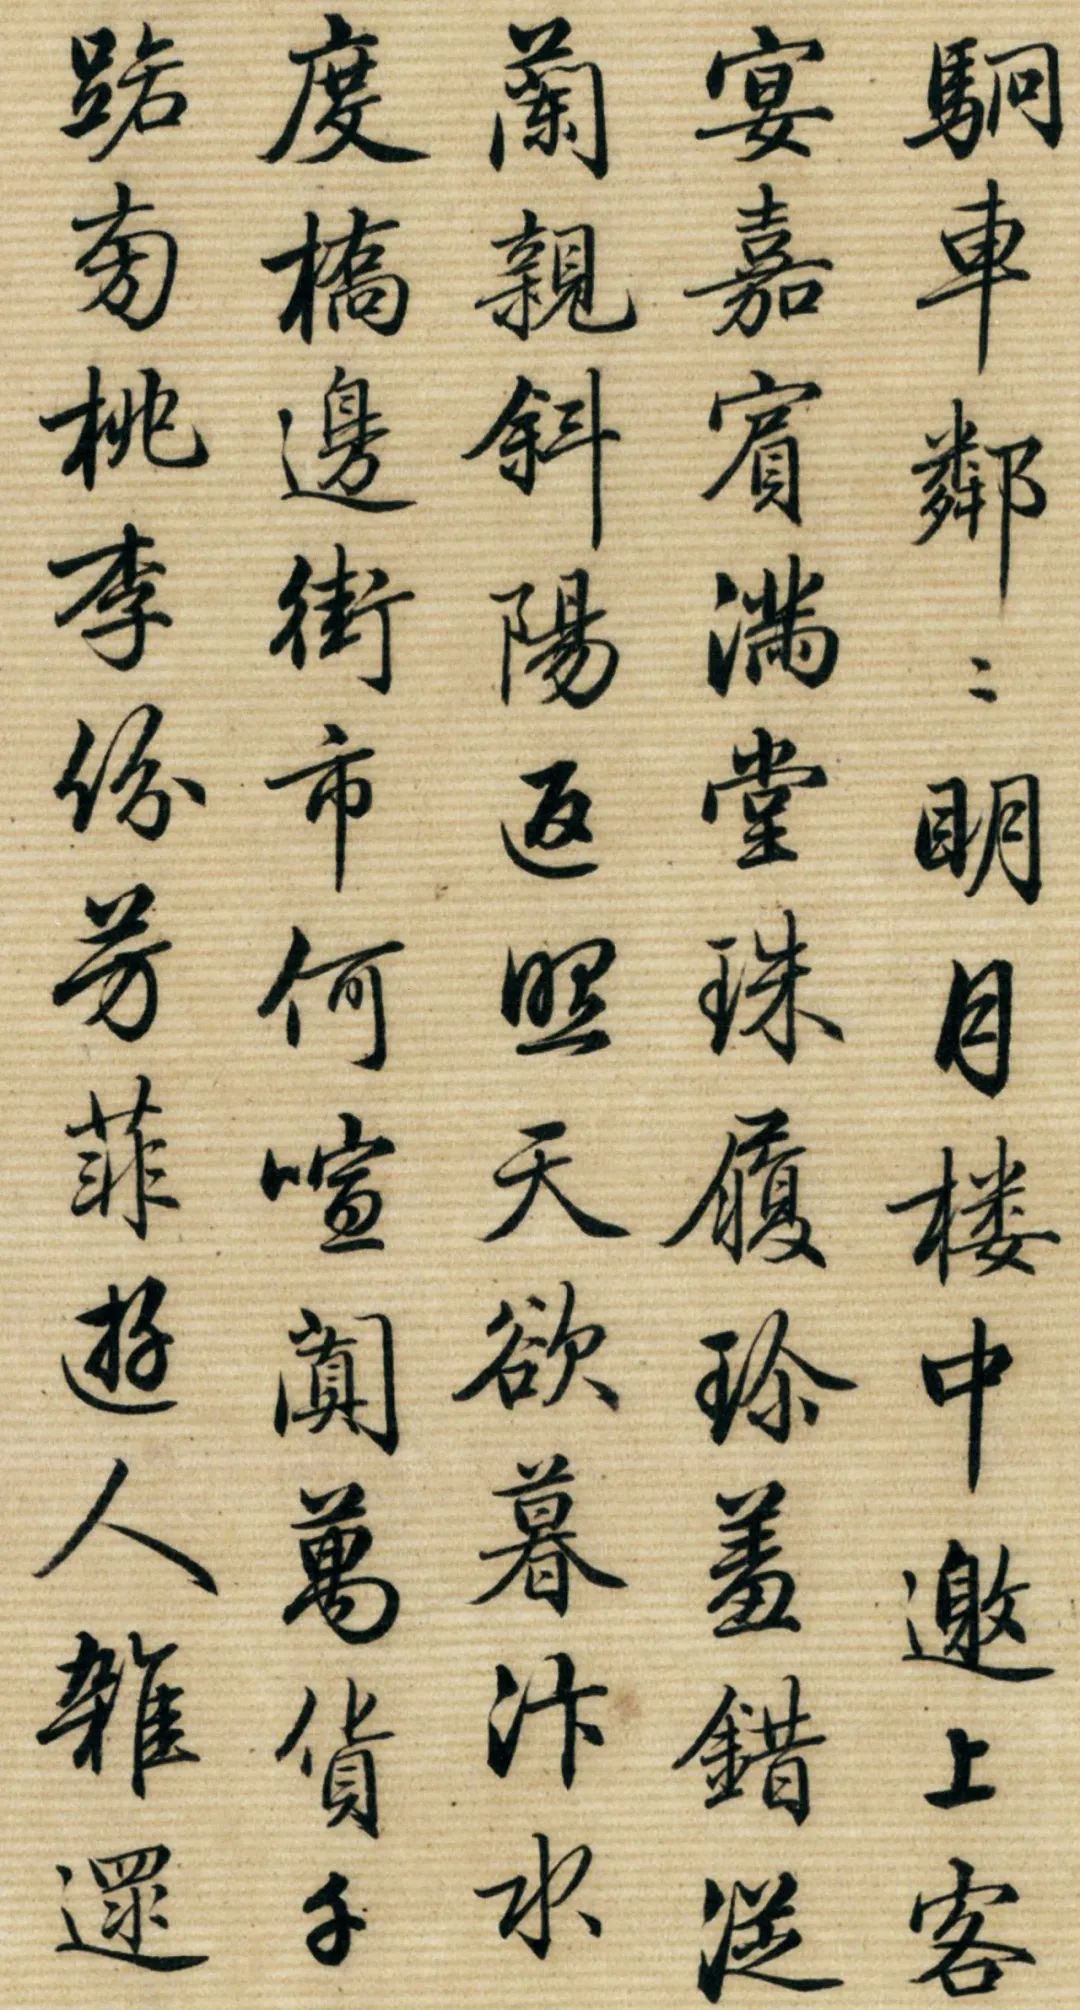 駉車鄰〻明月楼中邀上客
宴嘉賓滿堂珠履珍羞錯從
蘭親斜陽返照天欲暮汴水
度橋邊街市何喧闐萬貨千
踞匊桃李份芳菲遊人雜還